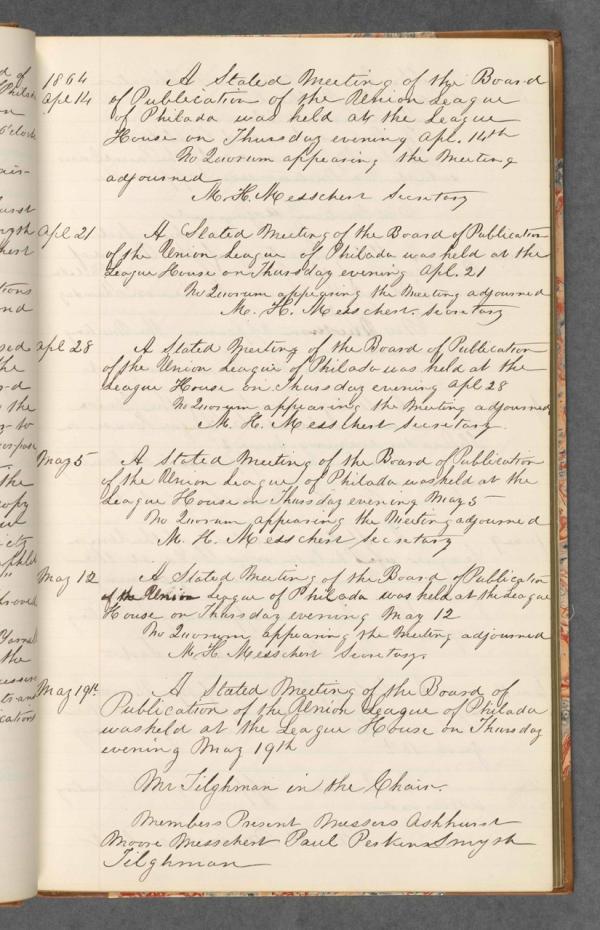 1864
Apl 14
A Stated Meeting of the Board
of Publication of the Union League
of Philada was held at the League
House on Thursday evening Apl. 14th
No Quorum appearing the Meeting
adjourned
M. H. Messchert Secretary
Apl 21
A Stated Meeting of the Board of Publication
of the Union League of Philada was held at the
League House on Thursday evening Apl. 21
No Quorum appearing the Meeting adjourned
M. H. Messchert. Secretary
Apl 28
A Stated Meeting of the Board of Publication
of the Union League of Philada was held at the
League House on Thursday evening Apl 28
No Quorum appearing the Meeting adjourned
M. H. Messchert Secretary
May 5
A Stated Meeting of the Board of Publication
of the Union League of Philada was held at the
League House on Thursday evening May 5
No Quorum appearing the Meeting adjourned
M. H. Messchert Secretary
May 12
A Stated Meeting of the Board of Publication
of the Union League of Philada was held at the League
House on Thursday evening May 12
No Quorum appearing the Meeting adjourned
M. H. Messchert Secretary.
May 19th
A Stated Meeting of the Board of
Publication of the Union League of Philada
was held at the League House on Thursday
evening May 19th
Mr Tilghman in the Chair.
Members Present Messers Ashhurst
Moore Messchert Paul Perkins Smyth
Tilghman